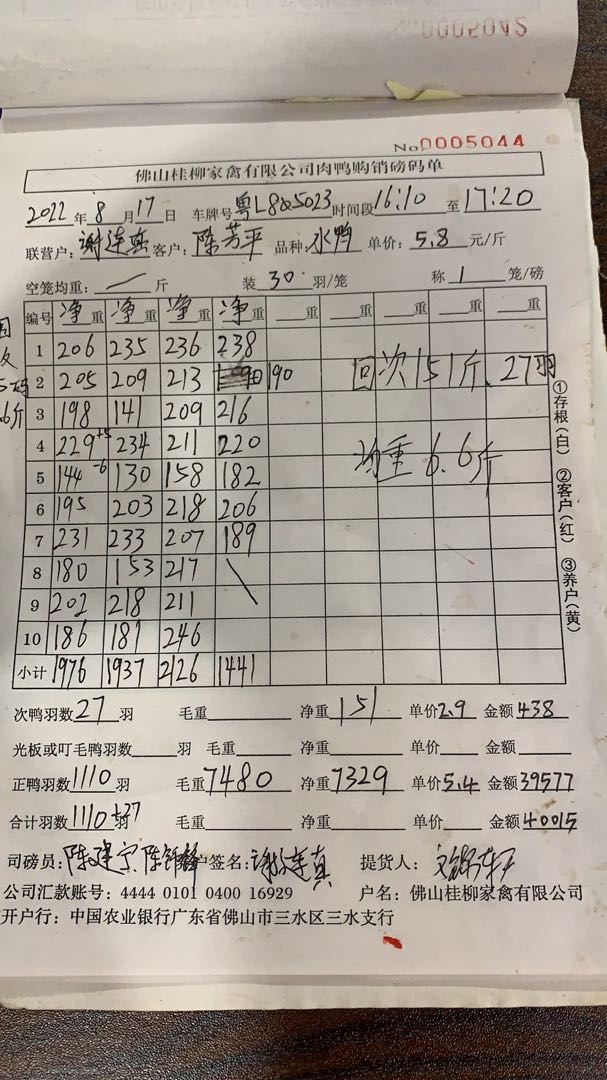 No 0005042
No 0005044
佛山桂柳家禽有限公司肉鸭购销磅码单
2022 年 8 月 17 日 车牌号 粤L8Q5023 时间段 16:10 至 17:20
联营户: 谢连真 客户: 陈芳平 品种: 水鸭 单价: 5.8 元/斤
空笼均重: 斤 装 30 羽/笼 称 1 笼/磅
编号 净重 净重 净重 净重 重 重 重 重
1 206 235 236 238
2 205 209 213 190 回次151斤、27羽
3 198 141 209 216
4 229+5 234 211 220 均重6.6斤
5 144-6 130 158 182
6 195 203 218 206
7 231 233 207 189
8 180 153 217
9 202 218 211
10 186 181 246
小计 1976 1937 2126 1441
①存根(白) ②客户(红) ③养户(黄)
次鸭羽数 27 羽 毛重 净重 151 单价 2.9 金额 438
光板或叮毛鸭羽数 羽 毛重 净重 单价 金额
正鸭羽数 1110 羽 毛重 7480 净重 7329 单价 5.4 金额 39577
合计羽数 1110+27 羽 毛重 净重 单价 金额 40015
司磅员: 陈建宁 户签名: 谢连真 提货人:
公司汇款账号: 4444 0101 0400 16929 户名: 佛山桂柳家禽有限公司
开户行: 中国农业银行广东省佛山市三水区三水支行